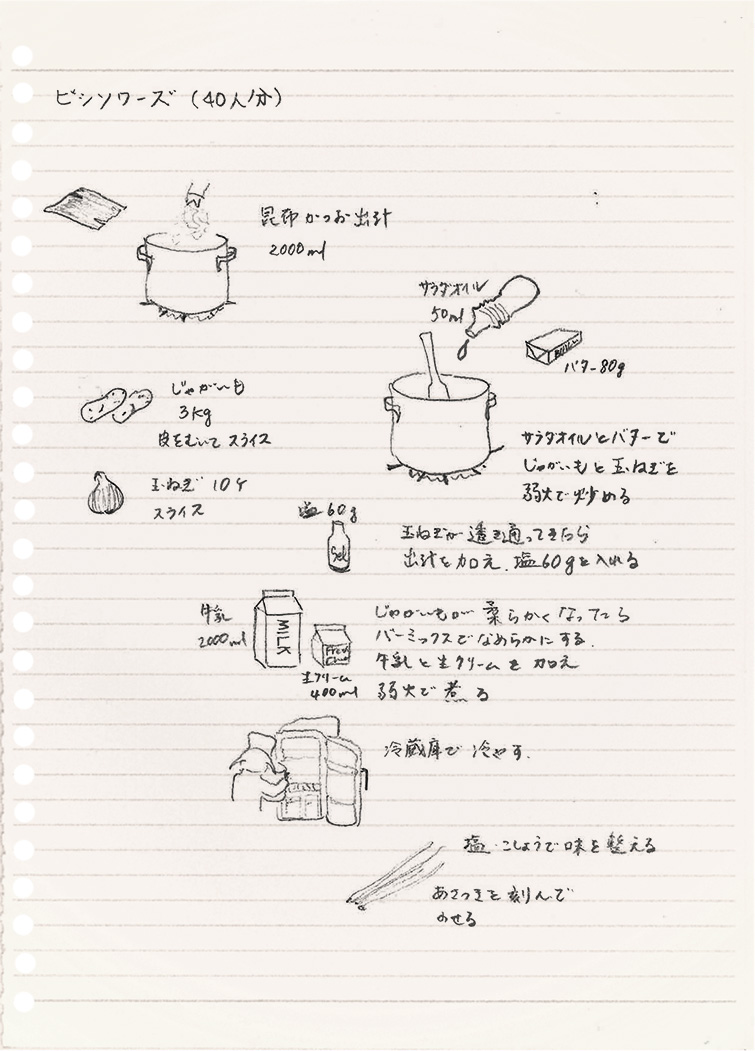 ビシソワーズ (40人分)
昆布かつお出汁
2000ml
サラダオイル
50ml
バター80g
じゃがいも
3kg
皮をむいてスライス
サラダオイルとバターで
じゃがいもと玉ねぎを
弱火で炒める
玉ねぎ 10ケ
スライス
塩60g
Sel
玉ねぎが透き通ってきたら
出汁を加え、塩60gを入れる
牛乳
2000ml
MILK
生クリーム
400ml
じゃがいもが柔らかくなったら
バーミックスでなめらかにする.
牛乳と生クリームを加え
弱火で煮る
冷蔵庫で冷やす.
塩・こしょうで味を整える
あさつきを刻んで
のせる